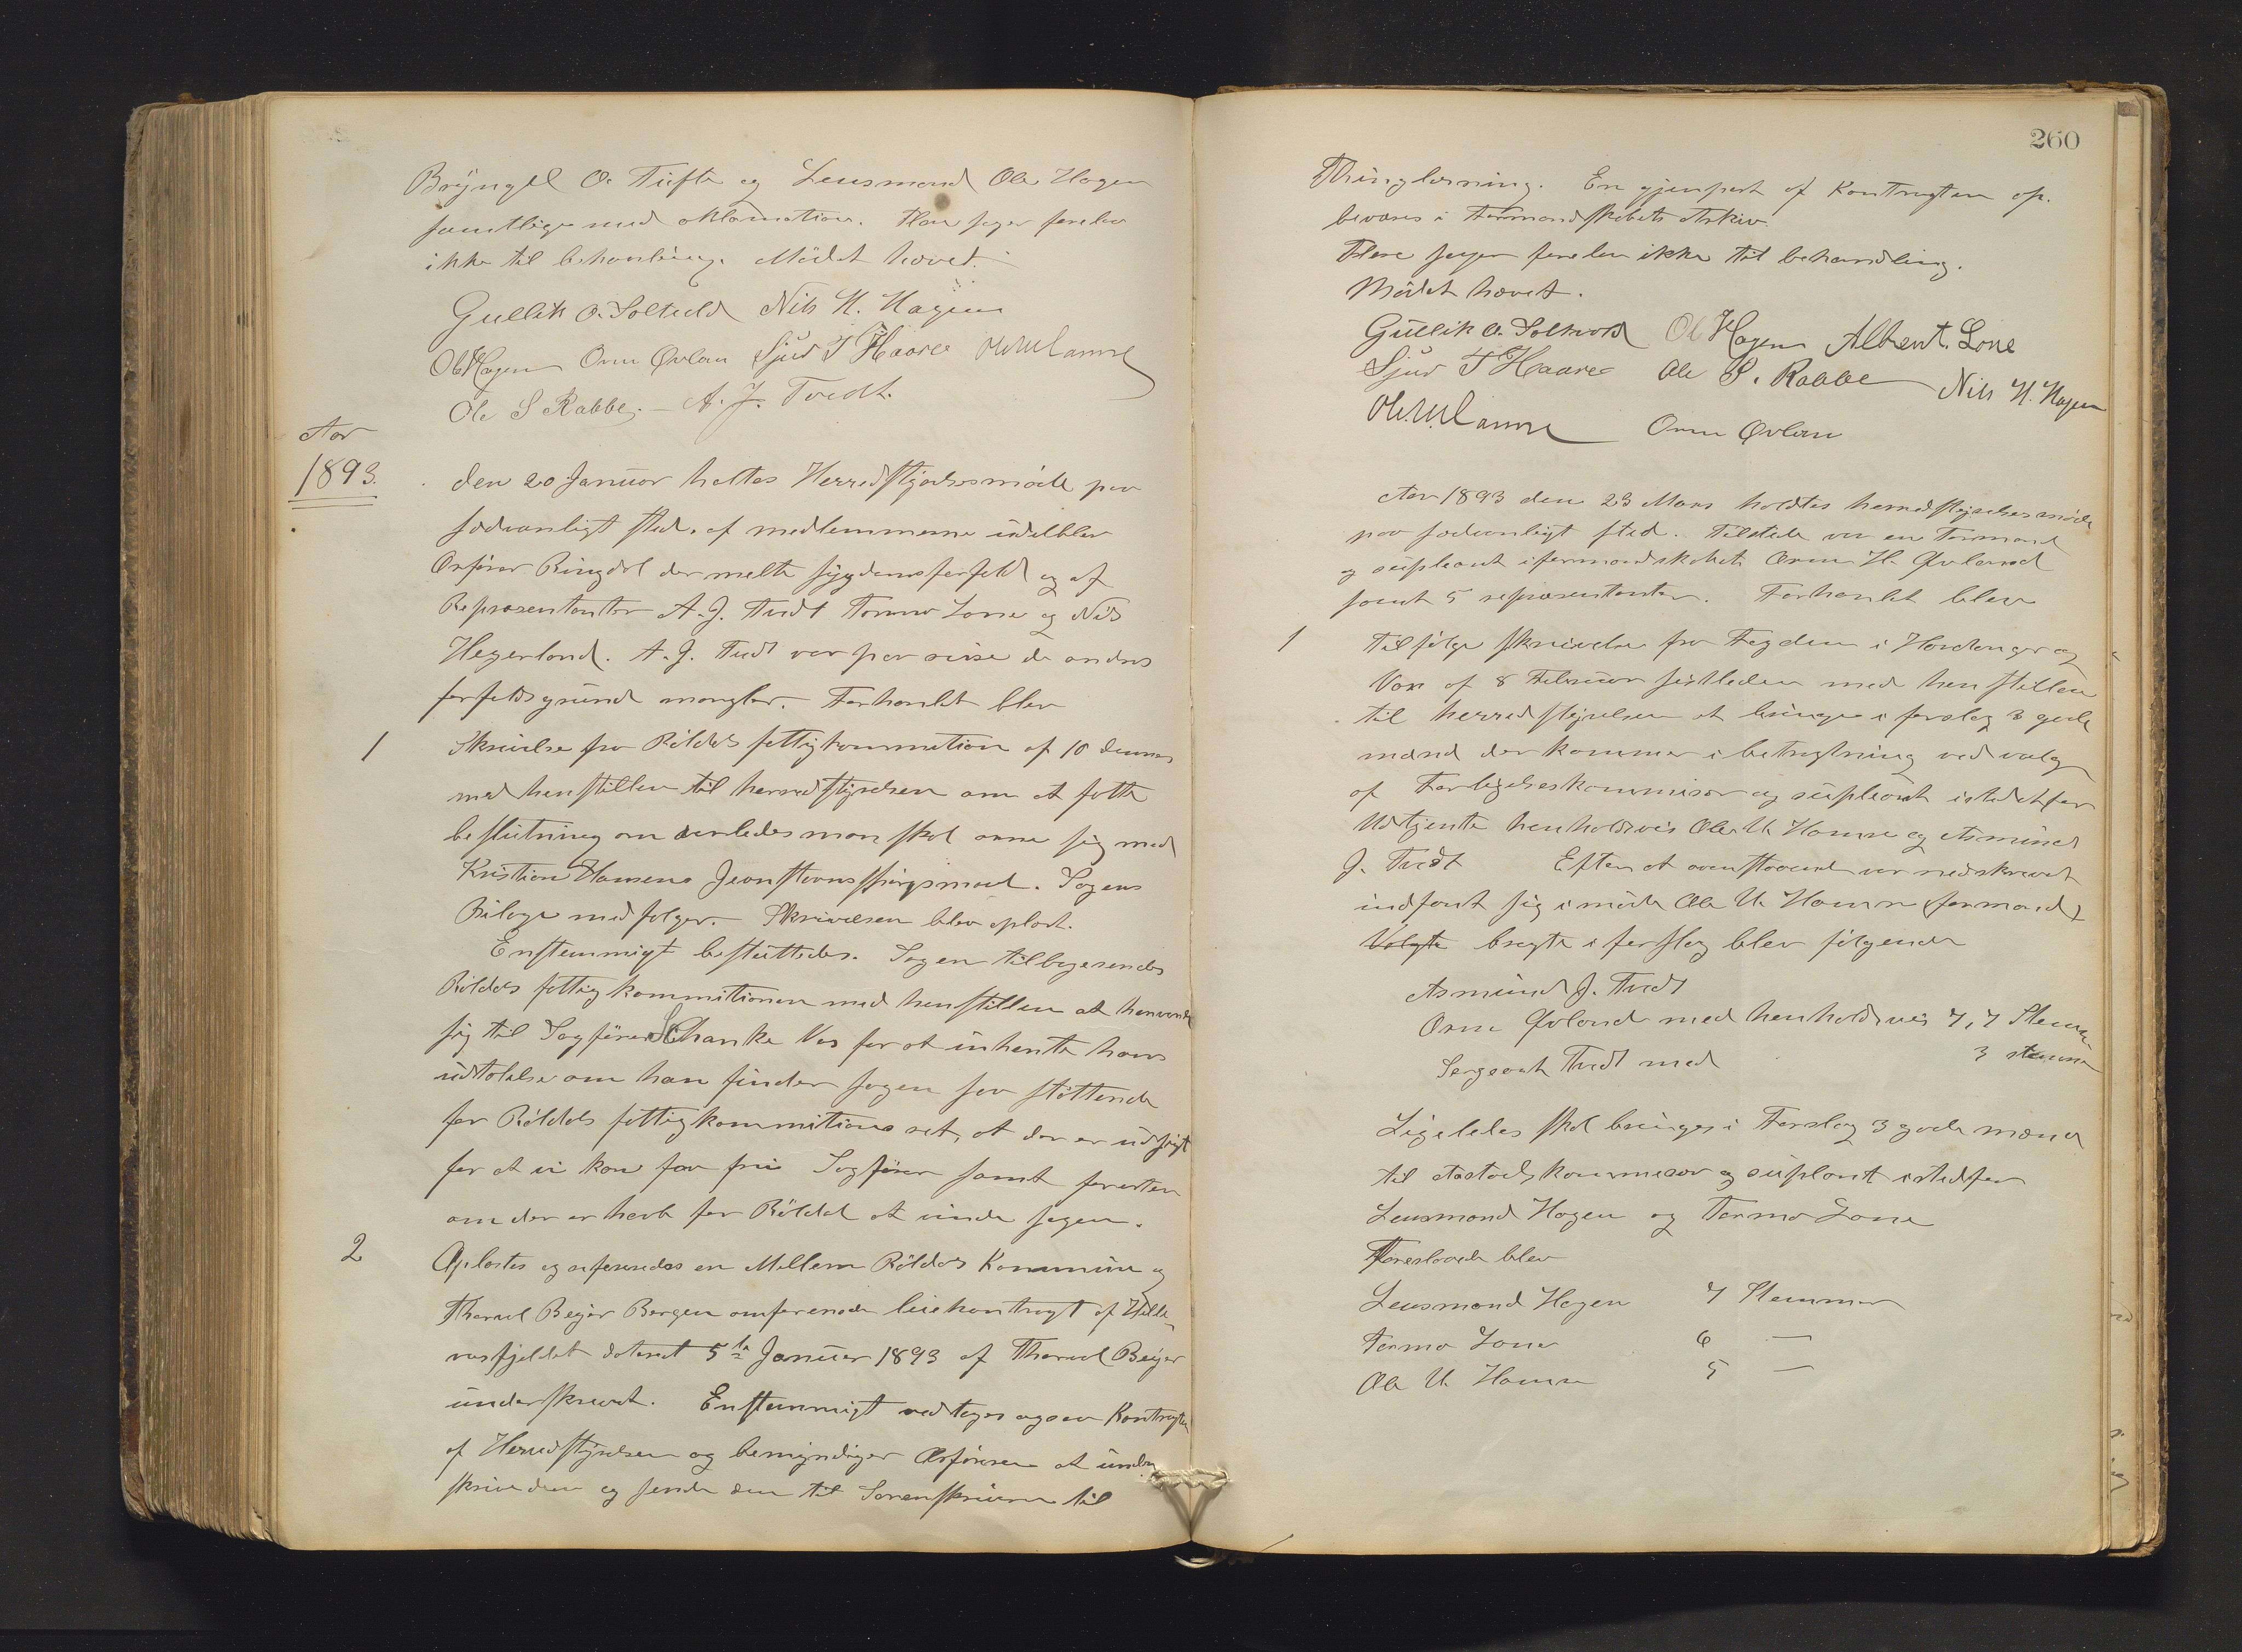 Bryngel O. Tufte og Lensmand Ole Hagen
samtlige med aklamation. Flere sager forelaa
ikke til behandling. Mödet hævet.
Gullik O. Soltvedt Nils H. Hagen
Ole Hagen Orm Øvland Sjur T Haare
Ole S Rabbe. — A. J. Tvedt.
Aar
1893.
den 20 Januar holtes Herredstyrelsesmöde paa
sedvanligt sted. af medlemmerne udelblev
Orförer Ringdal der melte sygdomsforfald og af
Representanter A. J. Tvedt Tormo Lone og Nils
Hegerland. A. J. Tvedt var paa reise de andres
forfaldsgrund mangler. Forhanlet blev
1 Skrivelse fra Röldals fattigkommition af 10 dennes
med henstillen til herredstyrelsen om at fatte
beslutning om anledes man skal arne sig med
Kristian Hansens Jeanstavns spörgsmael. Sagens
Bilage medfølger. Skrivelsen blev oplæst.
Enstemmigt besluttedes. Sagen tilbagesendes
Röldals fattigkommitionen med henstillen at henvende
sig til Sagförer Schanke Vos for at inhente hans
udtalelse om han finder sagen saa støttende
for Röldals fattigkommitions ret, at der er udsigt
for at vi kan faa fri Sagförer samt foresten
om der er haab for Röldal at vinde sagen.
2 Oplæstes og refereredes en Mellem Röldals Kommune og
Thorvel Beyer Bergen omførende leiekontragt af Valle-
vasfjeldet dateret 5te Januar 1893 af Thorvel Beyer
underskrevet. Enstemmigt vedtages ogsaa Kontragten
af Herredstyrelsen og bemyndiger Orföreren at under
skrive den og sende den til Sorenskriveren til
260
Thinglæsning. En gjenpart af Kontragten op-
bevares i Formandskabets Arkiv.
Flere sager forelaa ikke til behandling.
Mödet hævet.
Gullik O. Soltvedt Ole Hagen Albert Lone
Sjur T Haare Ole S. Rabbe Nils H. Hagen
Orm Øvland
Aar 1893 den 23 Mars holdtes herredstyrelsesmöde
paa sedvanligt sted. Tilstede var en Formand
og supleant i formandskabet Orm H. Øvland
samt 5 representanter. Forhanlet blev
1 Tilfölge skrivelse fra Fogden i Hardanger og
Vos af 8 Februar sistleden med henstillen
til herredstyrelsen at bringe i forslag 3 gode
mænd der kommer i betragtning ved valg
af Forligelseskommisær og supleant istedetfor
Udtjente henholdsvis Ole U. Hamre og Asmund
J. Tvedt Efter at ovenstaaende var nedskrevet
indfant sig i möde Ole U. Hamre (formand)
Valgte bragte i forslag blev fölgende
Asmund J. Tvedt
Orm Øvland med henholdsvis 7, 7 Stemmer
Sergeant Tvedt med 3 stemmer
Ligeledes skal bringes i Forslag 3 gode mænd
til Aastadskommisær og suplant istedfor
Lensmand Hagen og Tormo Lone
Foreslaaede blev
Lensmand Hagen 7 Stemmer
Tormo Lone 6 —
Ole U. Hamre 5 —